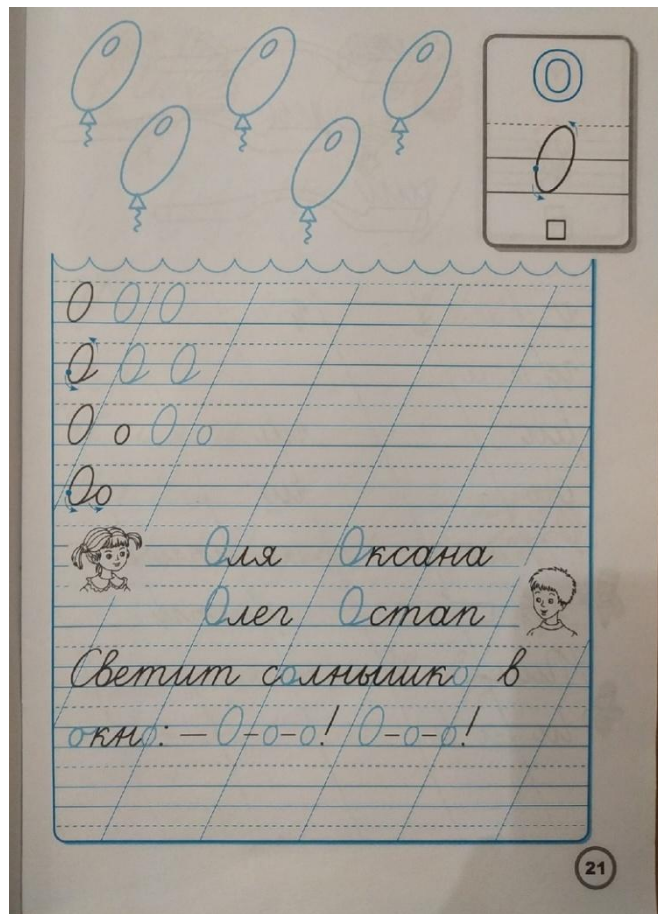 О
О
О О О
О О О
О о О о
Оо
Оля Оксана
Олег Остап
Светит солнышко в
окно: – О-о-о! О-о-о!
21